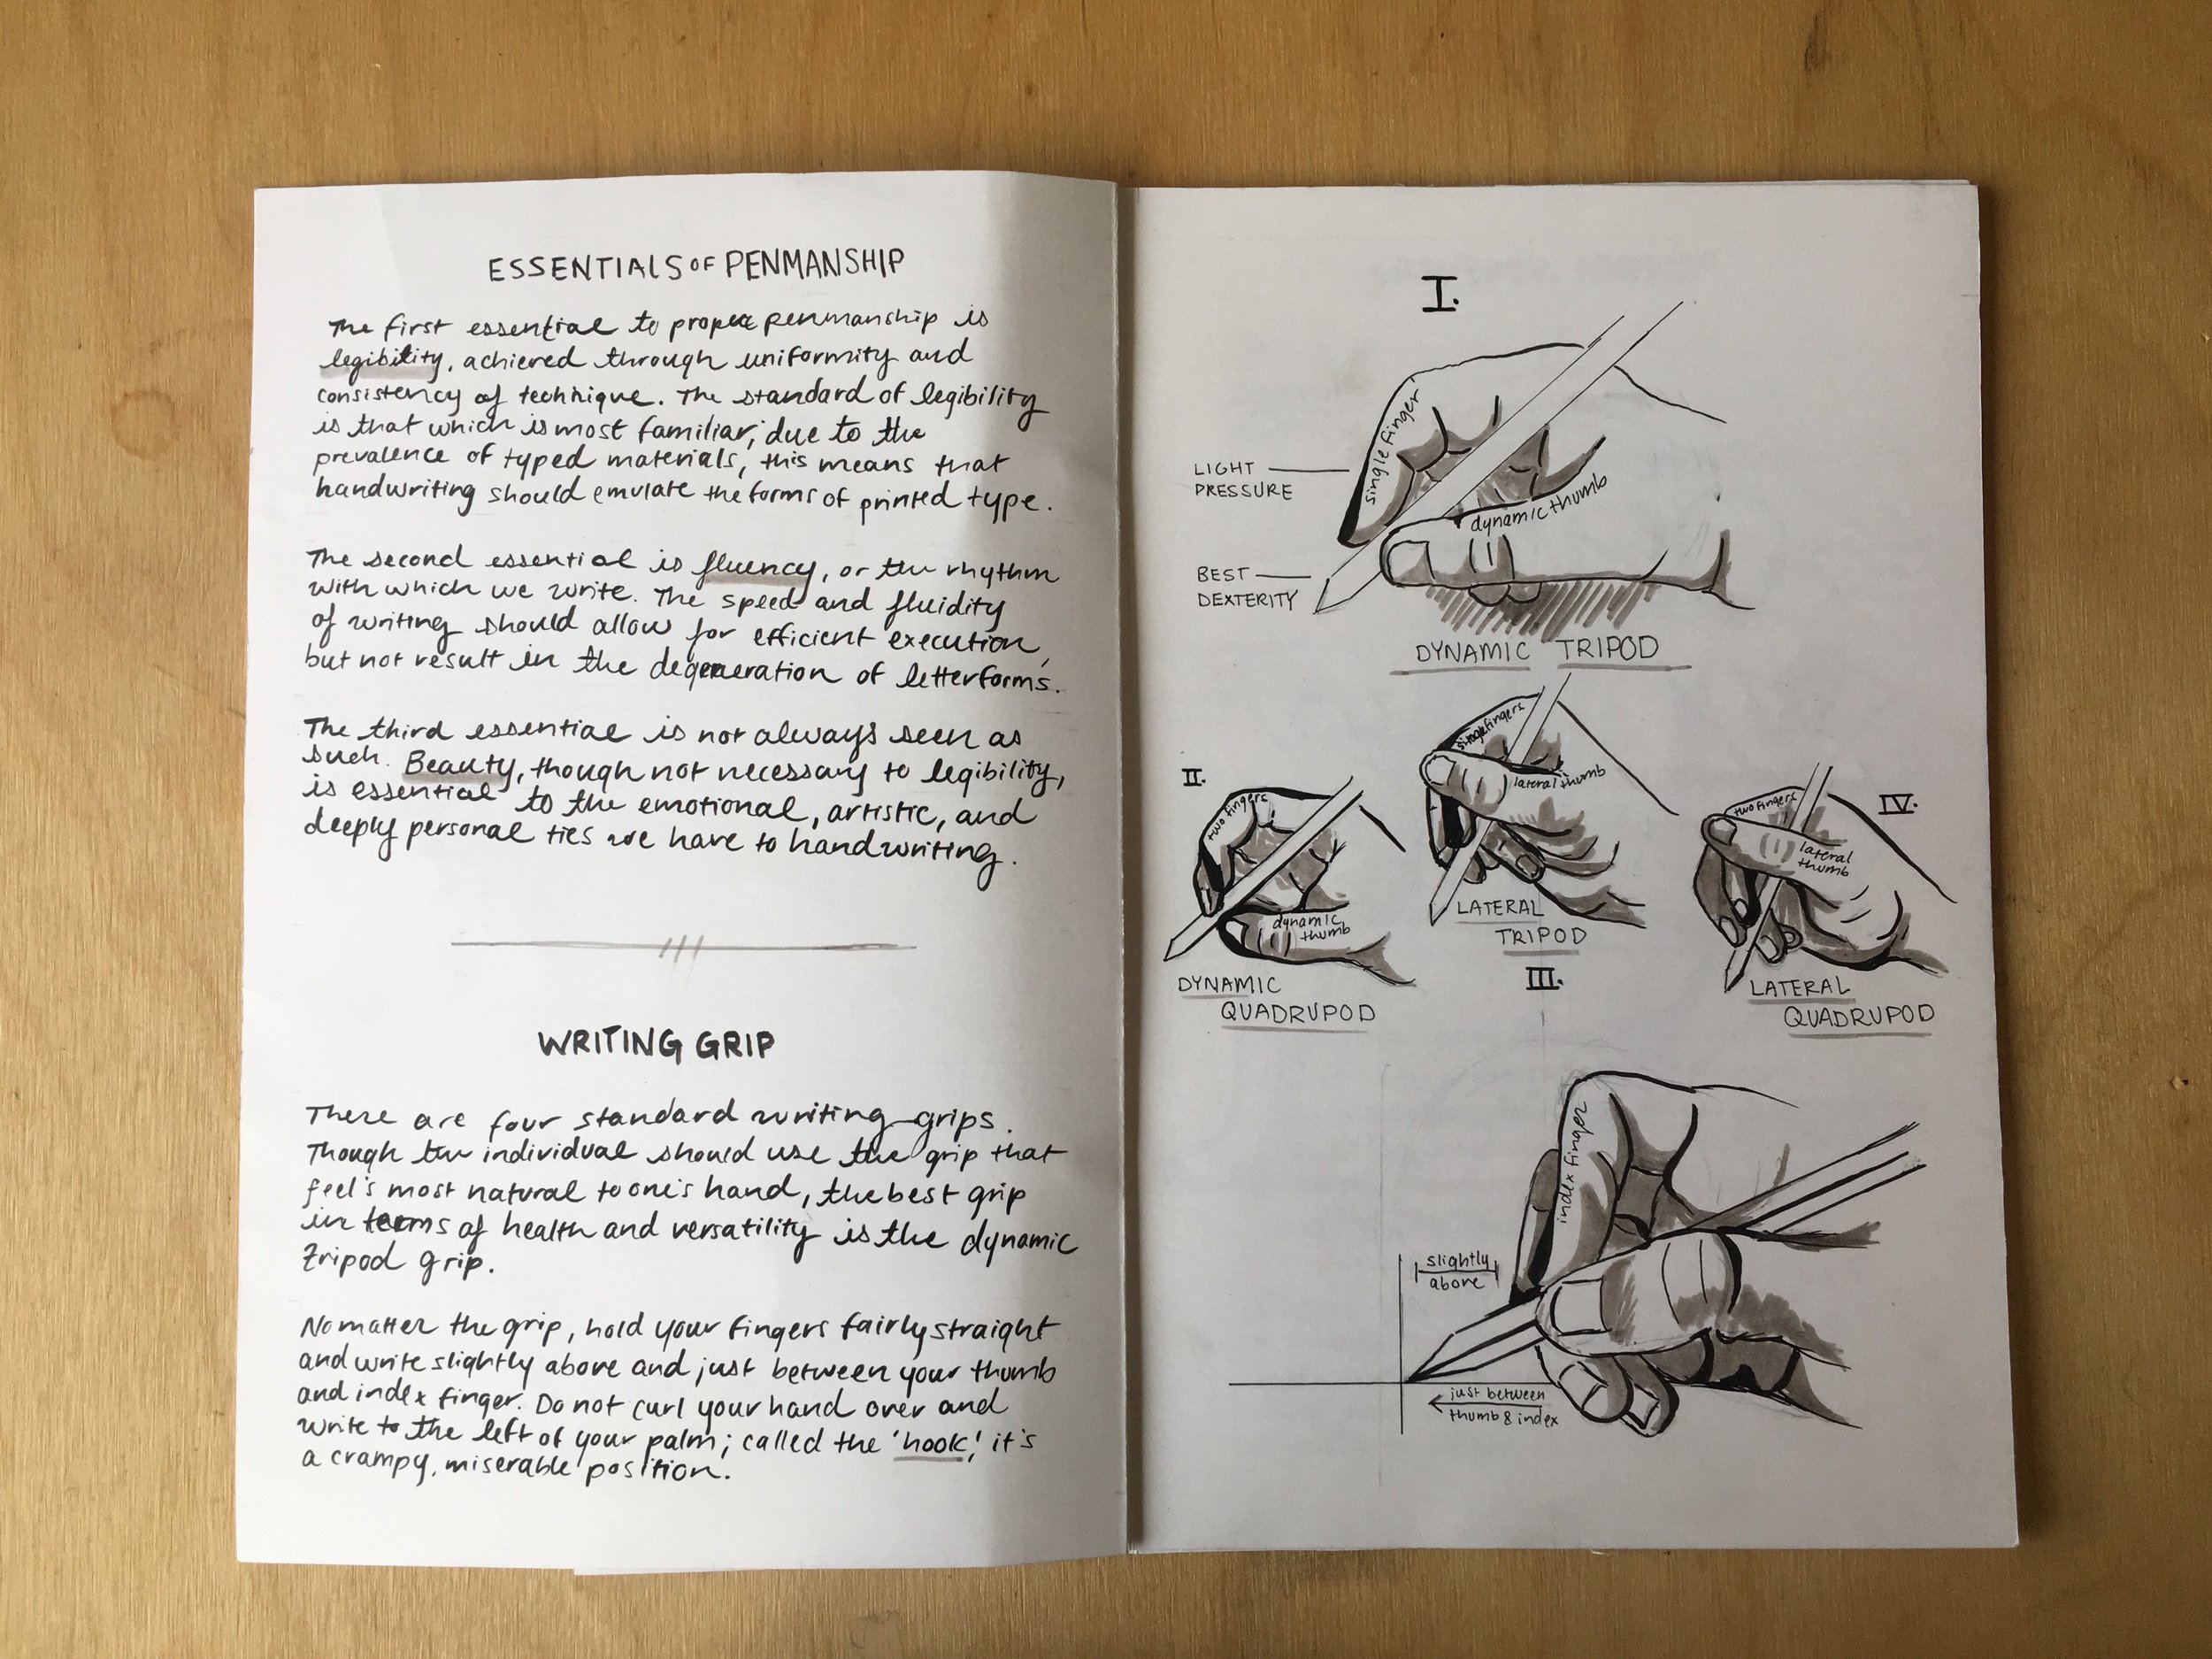 ESSENTIALS OF PENMANSHIP
The first essential to proper penmanship is
legibility, achieved through uniformity and
consistency of technique. The standard of legibility
is that which is most familiar; due to the
prevalence of typed materials, this means that
handwriting should emulate the forms of printed type.
The second essential is fluency, or the rhythm
with which we write. The speed and fluidity
of writing should allow for efficient execution,
but not result in the degeneration of letterforms.
The third essential is not always seen as
such. Beauty, though not necessary to legibility,
is essential to the emotional, artistic, and
deeply personal ties we have to handwriting.
WRITING GRIP
There are four standard writing grips.
Though the individual should use the grip that
feel's most natural to one's hand, the best grip
in terms of health and versatility is the dynamic
tripod grip.
No matter the grip, hold your fingers fairly straight
and write slightly above and just between your thumb
and index finger. Do not curl your hand over and
write to the left of your palm; called the 'hook', it's
a crampy, miserable position.
I.
single finger
LIGHT
PRESSURE
dynamic thumb
BEST
DEXTERITY
DYNAMIC TRIPOD
II.
two fingers
dynamic
thumb
DYNAMIC
QUADRUPOD
single fingers
lateral thumb
LATERAL
TRIPOD
III.
IV.
two fingers
lateral
thumb
LATERAL
QUADRUPOD
index finger
slightly
above
just between
thumb & index